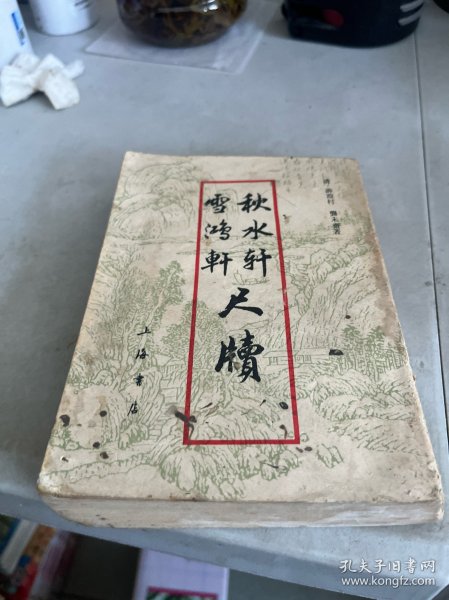 秋水轩
雪鸿轩
尺牍
上海书店
孔夫子旧书网
www.kongfz.com